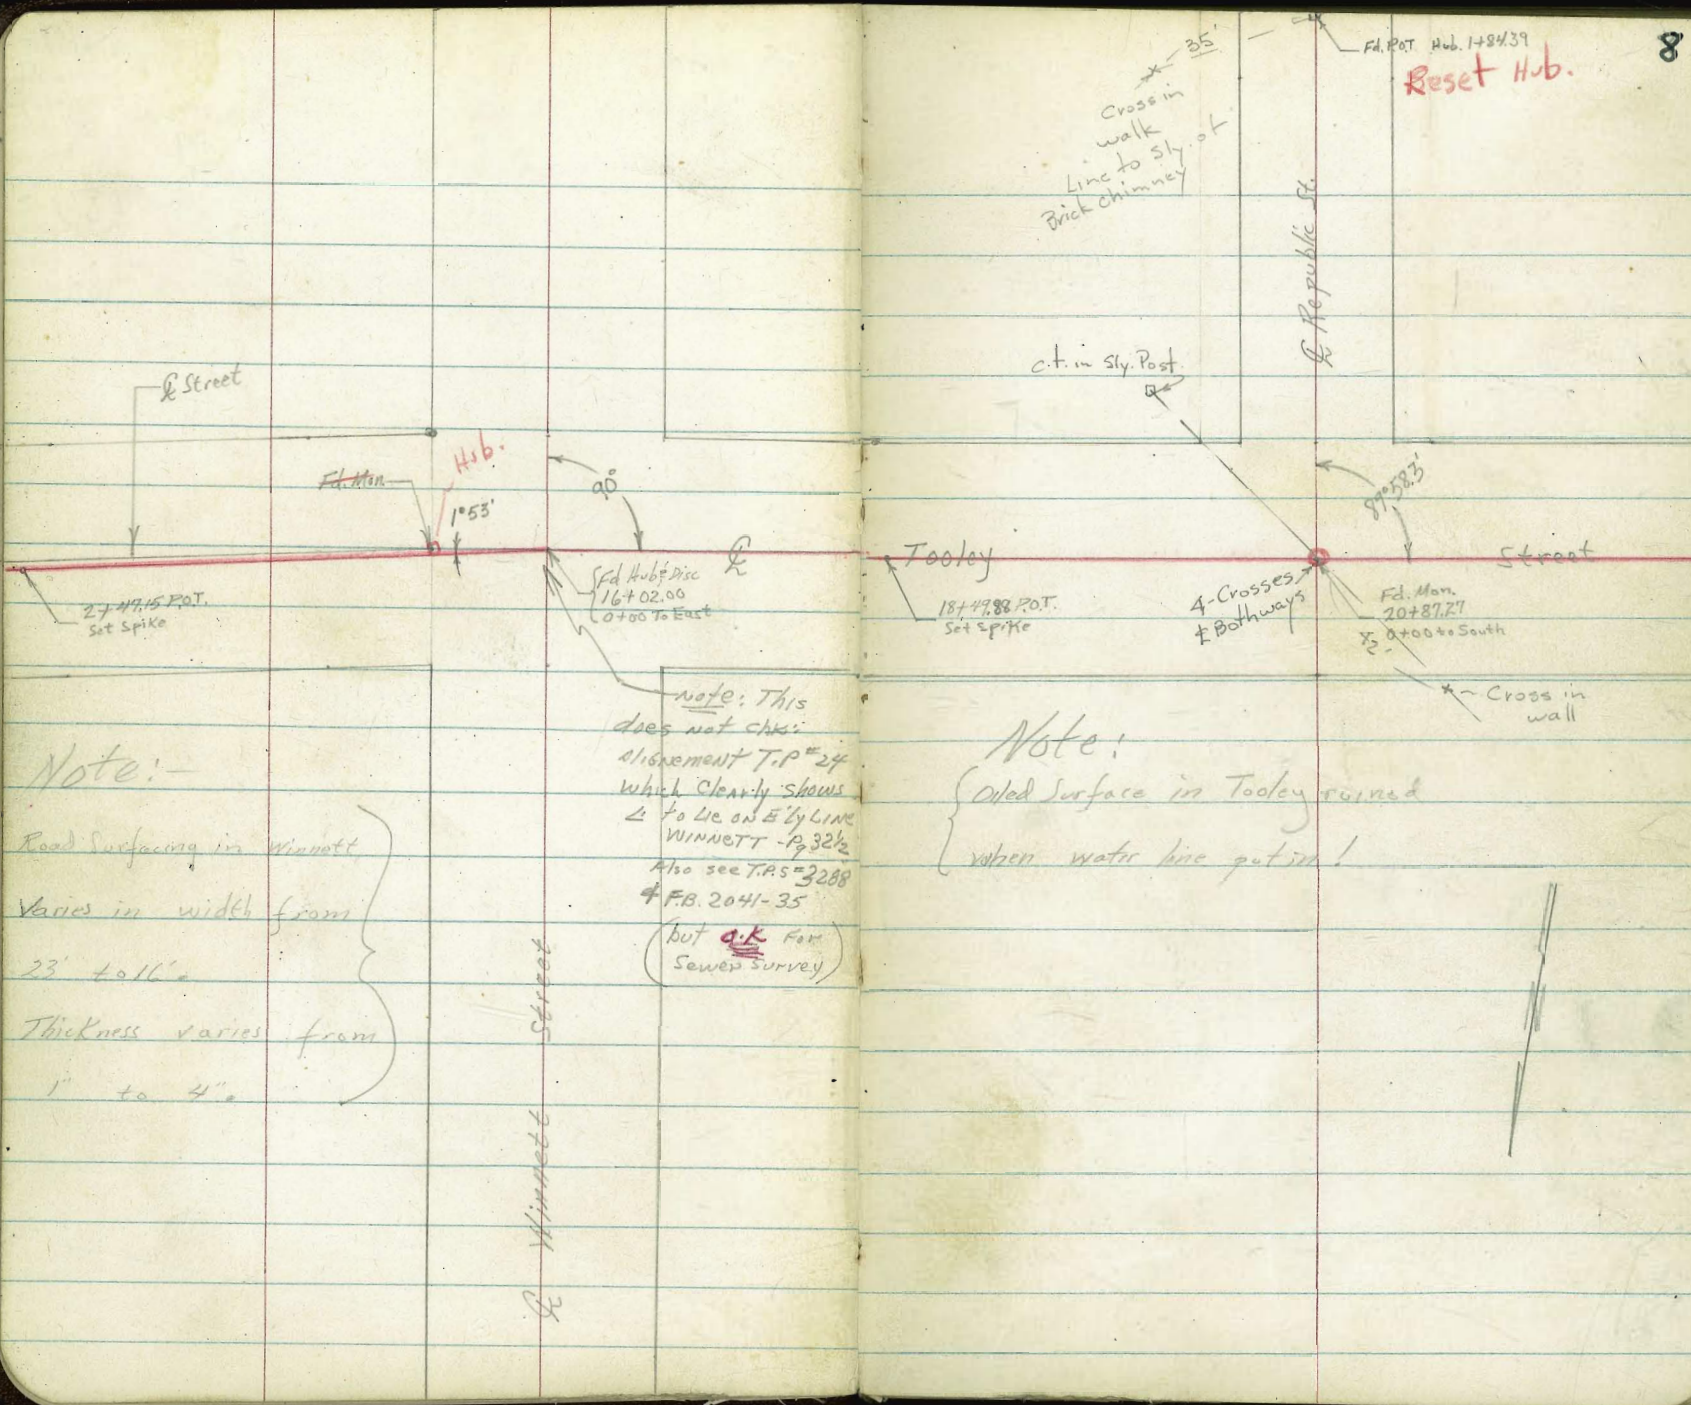 ℄ Street
Hub.
Fd. Mon.
1°53'
90°
℄
2+47.15 P.O.T.
Set Spike
Fd Hub & Disc
16+02.00
0+00 To East
Note: This
does not chk:
alignement T.P # 24
which Clearly shows
to Lie on E'ly Line
Winnett - Pg 32½
Also see T.P.S = 3288
& F.B. 2041-35
(but O.K For
Sewer Survey)
Note:-
Road Surfacing in Winnett
Varies in width from
23' to 16'.
Thickness varies from
1" to 4".
℄ Winnett Street
8
35'
Fd. P.O.T. Hub. 1+84.39
Reset Hub.
Cross in
walk
Line to Sly. of
Brick chimney
℄ Republic St.
c.t. in Sly. Post
89°58.3'
Tooley Street
18+49.88 P.O.T.
Set Spike
4-Crosses
℄ Bothways
Fd. Mon.
20+87.27
0+00 to South
Cross in
wall
Note:
Oiled Surface in Tooley ruined
when water line put in!